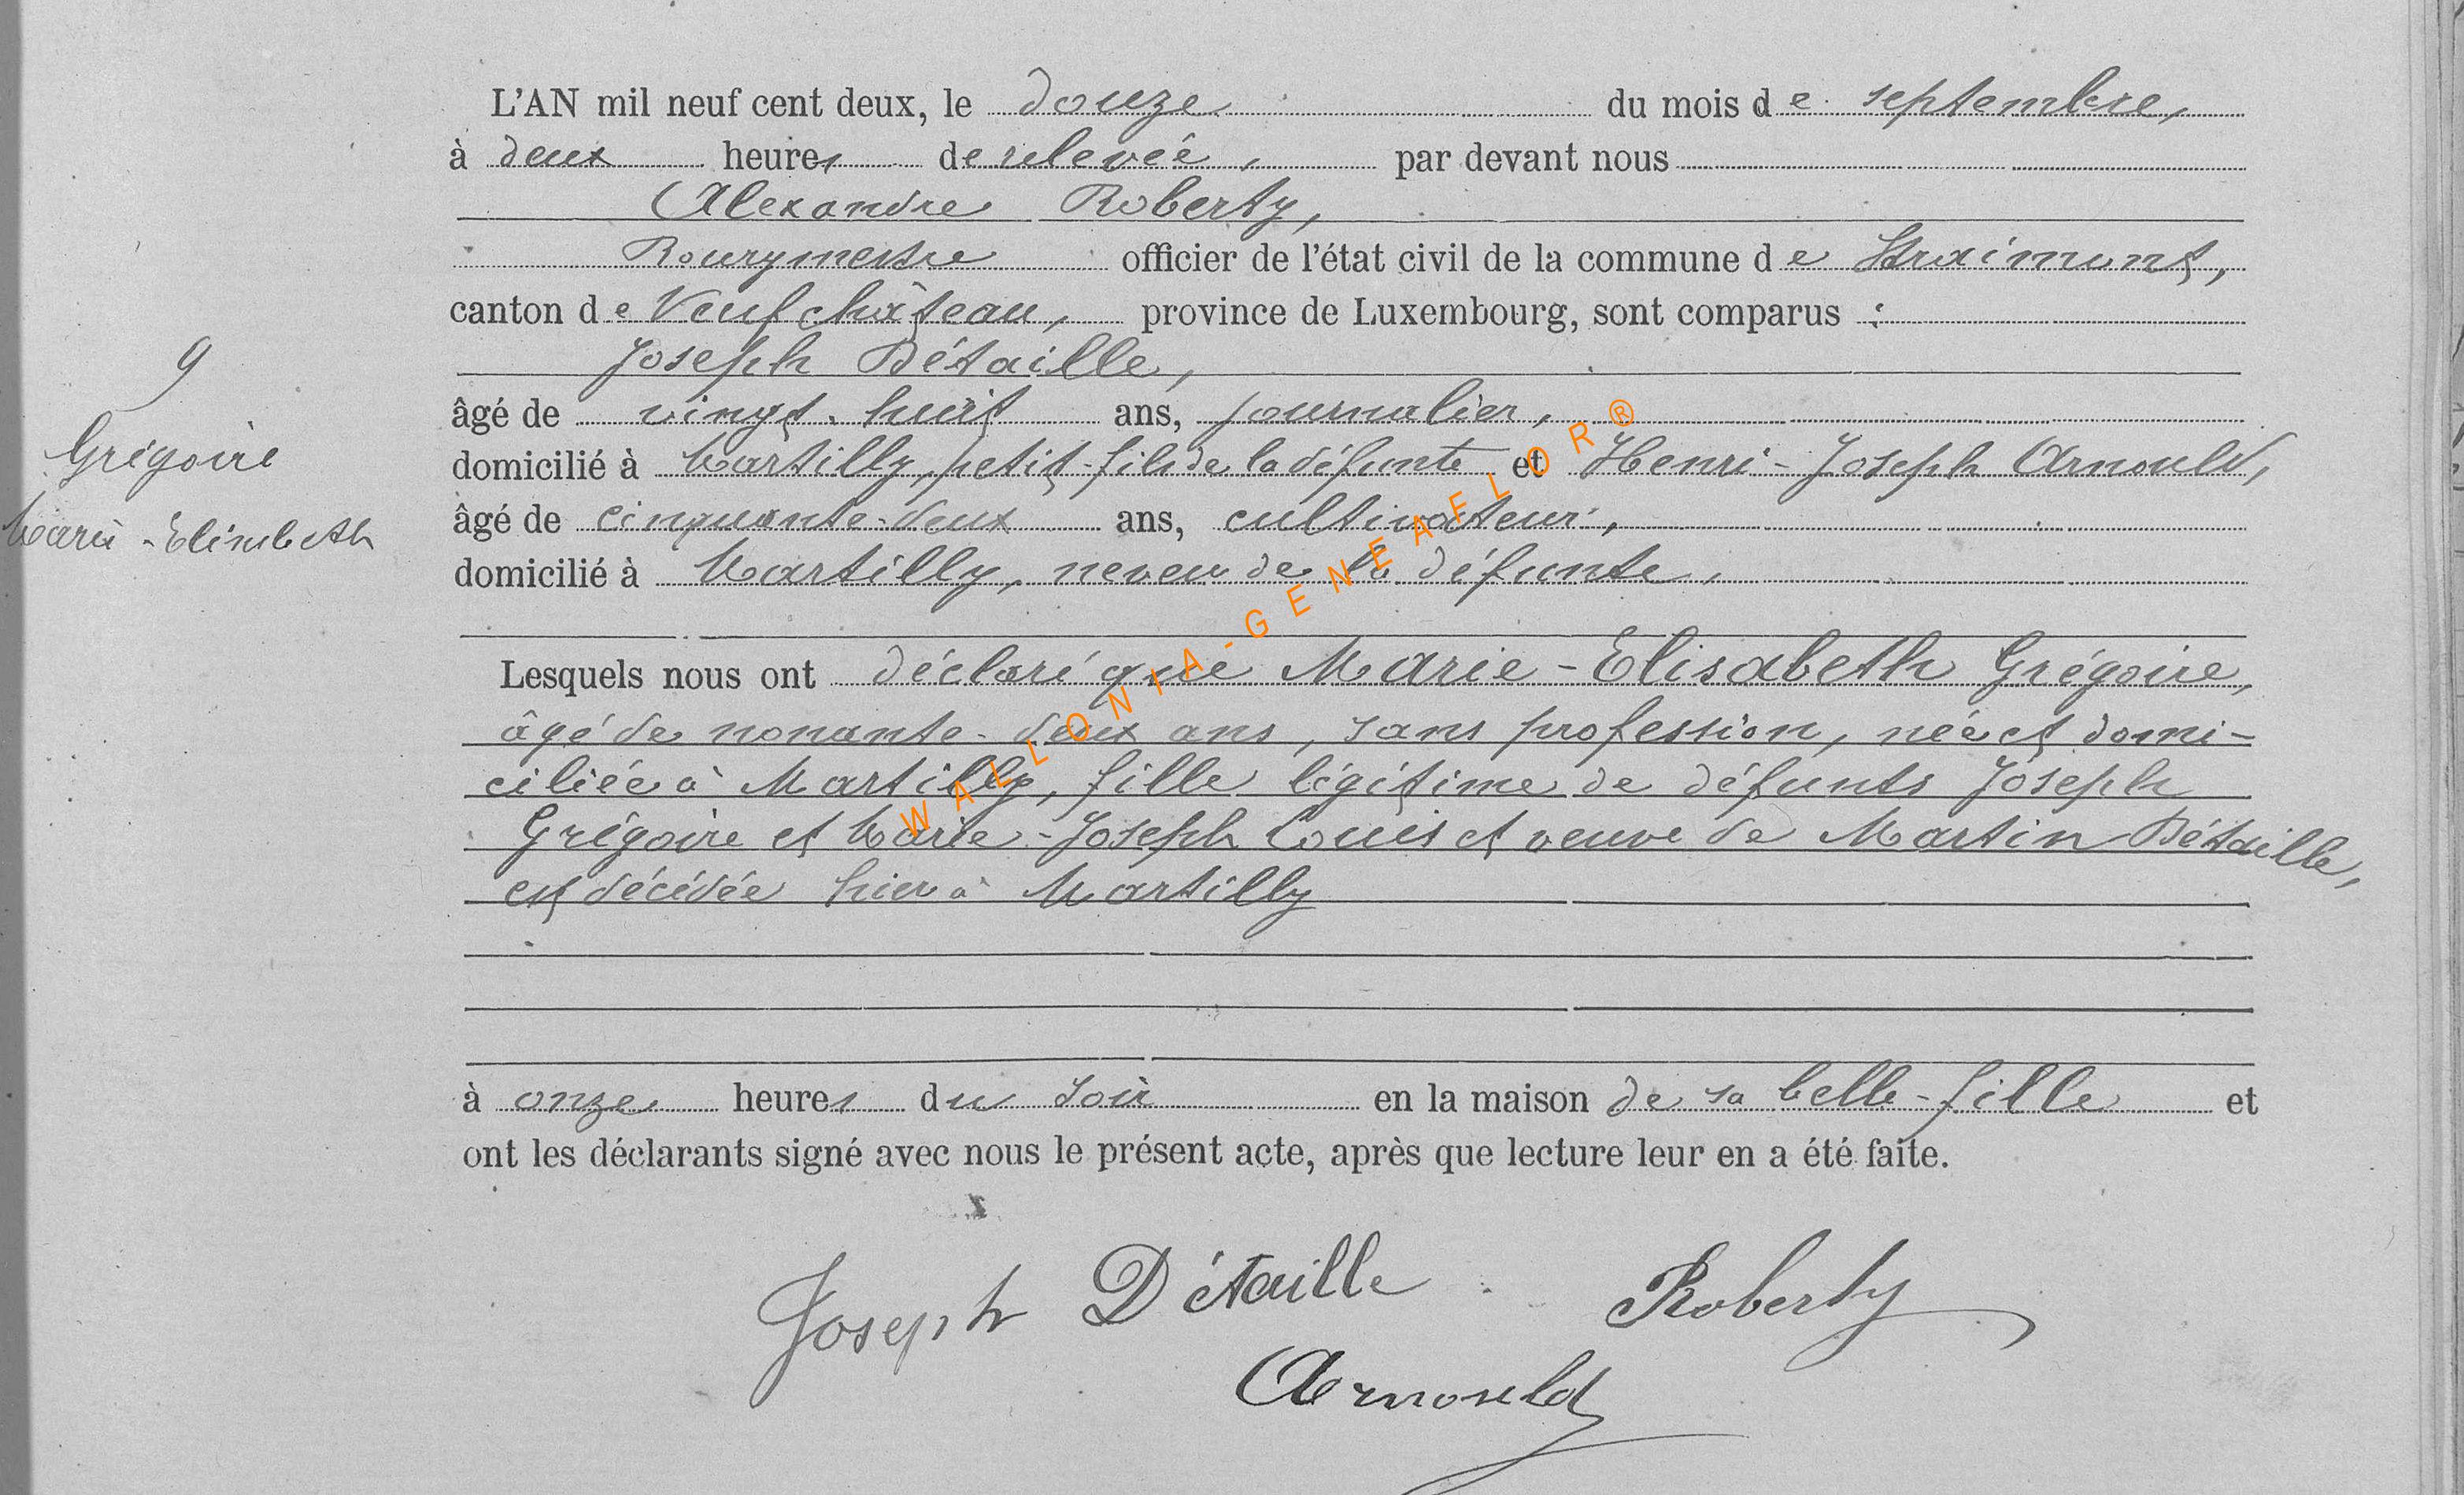 L'AN mil neuf cent deux, le douze du mois de septembre,
à deux heures de relevée, par devant nous
Alexandre Roberty,
Bourgmestre officier de l'état civil de la commune de Straimont,
canton de Neufchâteau, province de Luxembourg, sont comparus :
Joseph Détaille,
âgé de vingt-huit ans, journalier,
domicilié à Martilly, petit-fils de la défunte et Henri-Joseph Arnould,
âgé de cinquante-deux ans, cultivateur,
domicilié à Martilly, neveu de la défunte,
9
Grégoire
Marie-Elisabeth
Lesquels nous ont déclaré que Marie-Elisabeth Grégoire,
âgé de nonante-deux ans, sans profession, née et domi-
ciliée à Martilly, fille légitime de défunts Joseph
Grégoire et Marie-Joseph Louis et veuve de Martin Détaille,
est décédée hier à Martilly
à onze heures du soir en la maison de sa belle-fille et
ont les déclarants signé avec nous le présent acte, après que lecture leur en a été faite.
Joseph Détaille Roberty
Arnould
WALLONIA-GENEAFLOR®